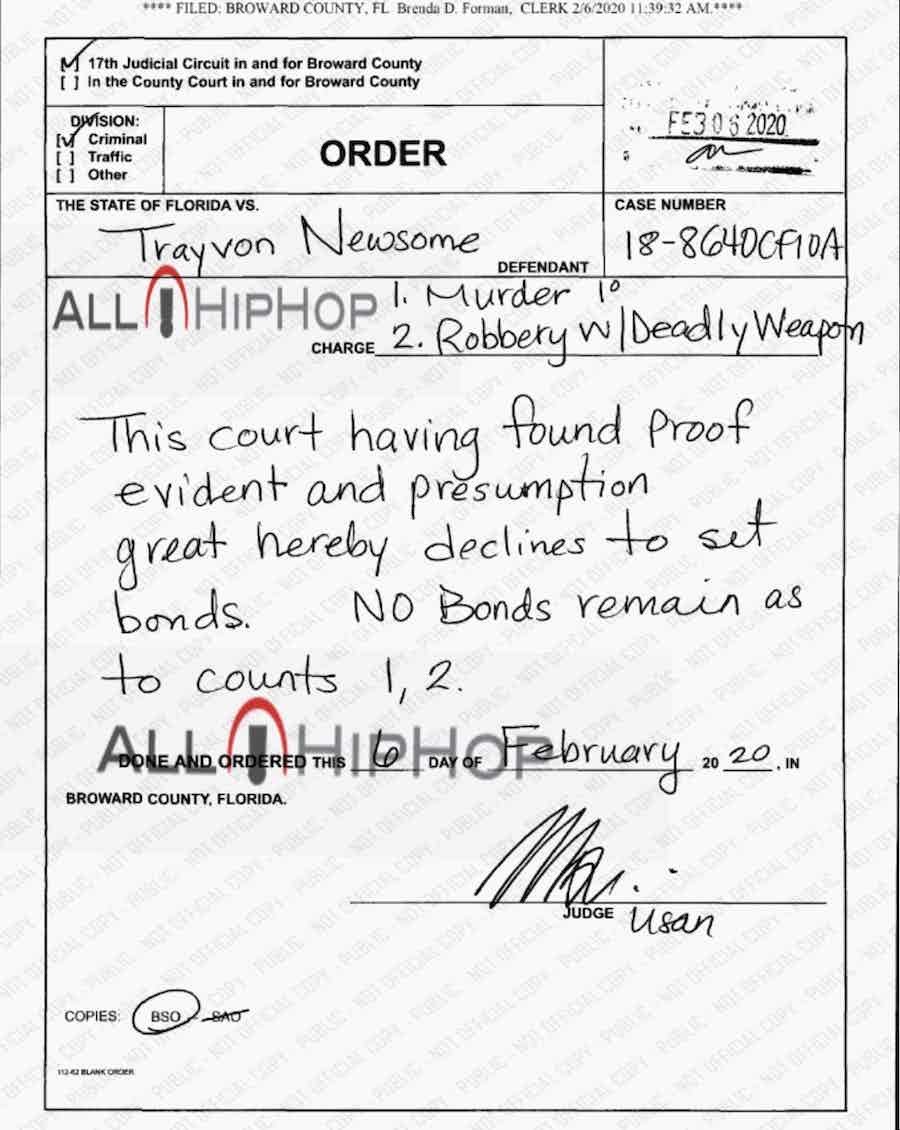 **** FILED: BROWARD COUNTY, FL Brenda D. Forman, CLERK 2/6/2020 11:39:32 AM.****
17th Judicial Circuit in and for Broward County
[ ] In the County Court in and for Broward County
DIVISION:
[✓] Criminal
[ ] Traffic
[ ] Other
ORDER
FEB 06 2020
THE STATE OF FLORIDA VS.
Trayvon Newsome
DEFENDANT
CASE NUMBER
18-8640CF10A
ALL HIPHOP
1. Murder 1°
CHARGE 2. Robbery w/Deadly Weapon
This court having found proof
evident and presumption
great hereby declines to set
bonds. NO Bonds remain as
to counts 1, 2.
ALL HIPHOP
DONE AND ORDERED THIS 6 DAY OF February 2020, IN
BROWARD COUNTY, FLORIDA.
JUDGE Usan
COPIES: BSO SAO
112-62 BLANK ORDER
PUBLIC - NOT OFFICIAL COPY